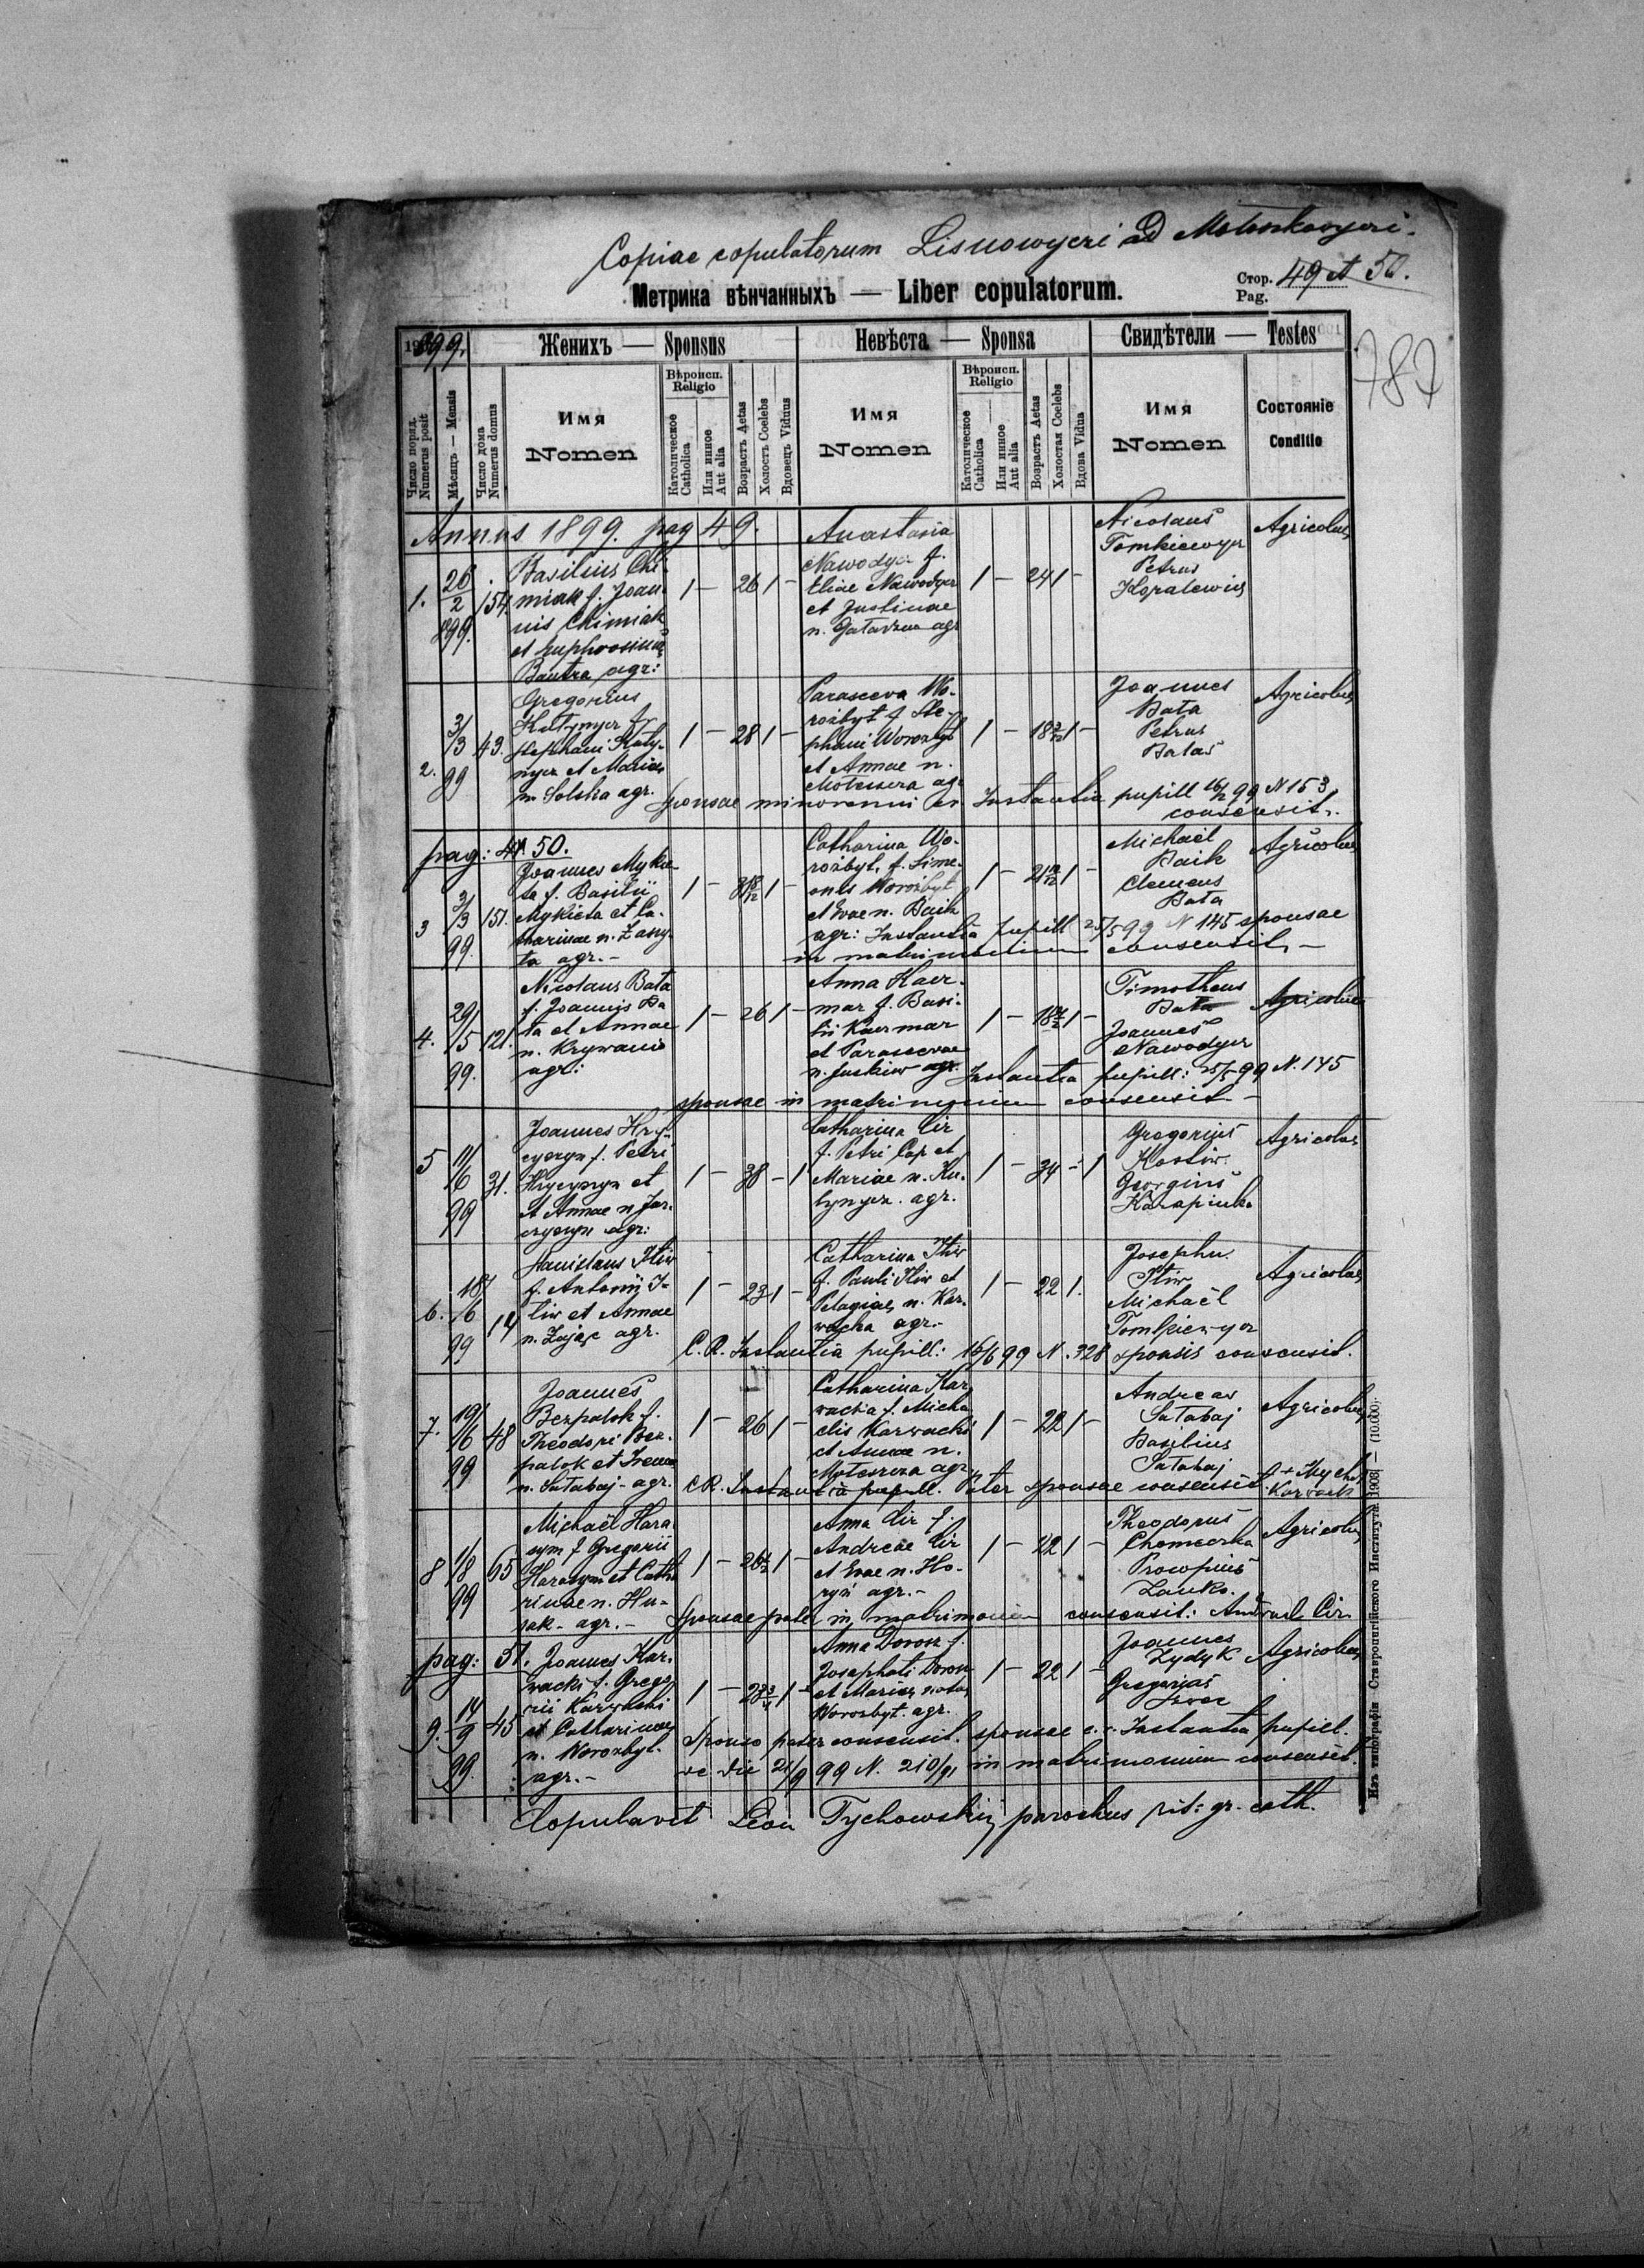 Copiae copulatorum Lisnowyczi ad
Метрика вѣнчанныхъ — Liber copulatorum.
Стор. Pag. 49 et 50.
787
899.
Женихъ — Sponsus
Невѣста — Sponsa
Свидѣтели — Testes
Число поряд. Numerus posit
Мѣсяцъ — Mensis
Число дома Numerus domus
Имя Nomen
Вѣроисп. Religio
Католическое Catholica
Или инное Aut alia
Возрастъ Aetas
Холостъ Coelebs
Вдовецъ Viduus
Имя Nomen
Вѣроисп. Religio
Католическое Catholica
Или инное Aut alia
Возрастъ Aetas
Холостая Coelebs
Вдова Vidua
Имя Nomen
Состояніе Conditio
Annus 1899. pag 49.
1.
26/2 899.
154.
Basilius Chi-
miak f. Joan-
nis Chimiak
et Euphrosinae
Bautra agr:
1 — 26 1 —
Anastasia
Nawodycz f.
Eliae Nawodycz
et Justinae
n. agr
1 — 24 1 —
Nicolaus
Tomkiewycz
Petrus
Agricolae
2.
3/3 99
43.
Gregorius
Katynycz f.
Stephani Katy-
nycz et Mariae
n. Solska agr.
1 — 28 1 —
Parasceva Wo-
rożbyt f. Ste-
phani Worożbyt
et Annae n.
agr
1 — 18 1 —
Joannes
Bata
Petrus
Batas
Agricolae
Sponsae minorenni Instantia pupill 99 N 153
consensit.
pag: 50.
3
3/3 99.
151.
Joannes Mykie-
ta f. Basilii
Mykieta et Ca-
tharinae n. Zany-
ta agr. —
1 — 1 —
Catharina Wo-
rożbyt, f. Sime-
onis Worożbyt
et Evae n. Baik
agr: Instantia pupill 25/5 99 N 145 sponsae
in matrimonium consensit. —
1 — 21 1 —
Michaël
Baik
Clemens
Bata
Agricolae
4.
29/5 99.
121.
Nicolaus Bata
f. Joannis Ba-
ta et Annae
n. Krywani
agr:
1 — 26 1 —
Anna Kacz-
mar f. Basi-
lii Kaczmar
et Parascevae
n. Juskiw agr.
1 — 18 1 —
Timotheus
Bata
Joannes
Nawodycz
Agricolae
Instantia pupill: 25/5 99 N. 145
sponsae in matrimonium consensit —
5
11/6 99
31.
Joannes Hry-
cyszyn f. Petri
Hrycyszyn et
et Annae n Jar-
agr:
1 — 38 — 1
Catharina Cir
f. Petri Cap et
Mariae n. Ku-
lynycz. agr.
1 — 34 — 1
Gregorius
Kostiw
Georgius
Karapinka
Agricolae
6.
18/6 99
14
Stanislaus Iliw
f. Antonii I-
liw et Annae
n. Zając agr.
1 — 23 1 —
Catharina Iliw
f. Pauli Iliw et
Pelagiae n. Kar-
wacka agr. —
1 — 22 1.
Josephu.
Iliw
Michaël
Tomkiewycz
Agricolae
C. R. Instantia pupill: 16/6 99 N. 328 sponsis consensit.
7.
19/6 99
48
Joannes
Bezpalok f.
Theodori Bez-
palok et Irenae
n. Satabaj - agr.
1 — 26 1 —
Catharina Kar
wacka f. Micha
elis Karwacki
et Annae n.
agr.
1 — 22 1 —
Andreas
Satabaj
Basilius
Satabaj
Agricolae
CR. Instantia pupill. Pater sponsae consensit + Mych. Karwack
8
1/8 99
65
Michaël Hara
sym f Gregorii
Harasym et Catha
rinae n. Hu-
sak - agr. —
1 — 26 1 —
Anna Cir f.
Andreae Cir
et Evae n. Ho-
ryń agr. —
1 — 22 1 —
Theodorus
Chomeczka
Procopius
Zanko.
Agricolae
Sponsae pater in matrimonium consensit: Cir
pag: 51.
9.
14/9 99.
45
Joannes Kar-
wacki f. Grego-
rii Karwacki
et Catharinae
n. Worożbyt.
agr. —
1 — 23 1 —
Anna Dorosz f.
Josaphati Dorosz
et Mariae nata
Worożbyt. agr.
1 — 22 1 —
Joannes
Zydyk
Gregorius
Szwec
Agricolae
Sponso pater consensit. sponsae c. r. Instantia pupill.
de die 21/9 99 N. 210/91 in matrimonium consensit.
Copulavit Leon Tychowskij parochus rit: gr. cath.
Изъ типографіи Ставропигійского Института 1908 — (10.000).